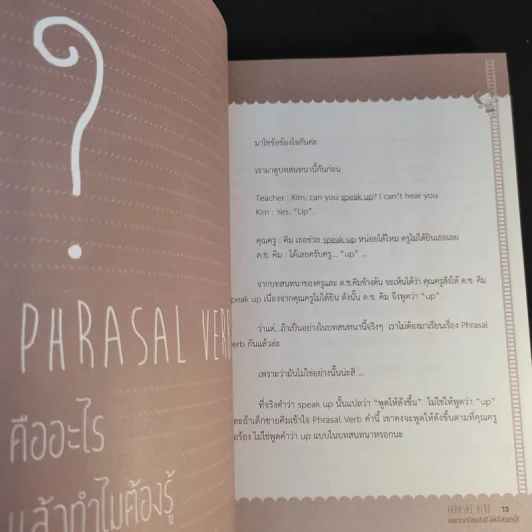 ?
PHRASAL VERB
คืออะไร
แล้วทำไมต้องรู้
มาไขข้อข้องใจกันค่ะ
เรามาดูบทสนทนานี้กันก่อน
Teacher : Kim, can you speak up? I can't hear you.
Kim : Yes. "Up".
คุณครู : คิม เธอช่วย speak up หน่อยได้ไหม ครูไม่ได้ยินเธอเลย
ด.ช. คิม : ได้เลยครับครู... "up" ...
จากบทสนทนาของครูและ ด.ช.คิมข้างต้น จะเห็นได้ว่า คุณครูสั่งให้ ด.ช. คิม
peak up เนื่องจากคุณครูไม่ได้ยิน ดังนั้น ด.ช. คิม จึงพูดว่า "up".
ว่าแต่...ถ้าเป็นอย่างในบทสนทนานี้จริงๆ เราไม่ต้องมาเรียนเรื่อง Phrasal
erb กันแล้วล่ะ
เพราะว่ามันไม่ใช่อย่างนั้นน่ะสิ ...
ที่จริงคำว่า speak up นั้นแปลว่า "พูดให้ดังขึ้น" ไม่ใช่ให้พูดว่า "up"
และถ้าเด็กชายคิมเข้าใจ Phrasal Verb คำนี้ เขาคงจะพูดให้ดังขึ้นตามที่คุณครู
้องขอ ไม่ใช่พูดคำว่า up แบบในบทสนทนาหรอกนะ
PHRASAL VERB 13